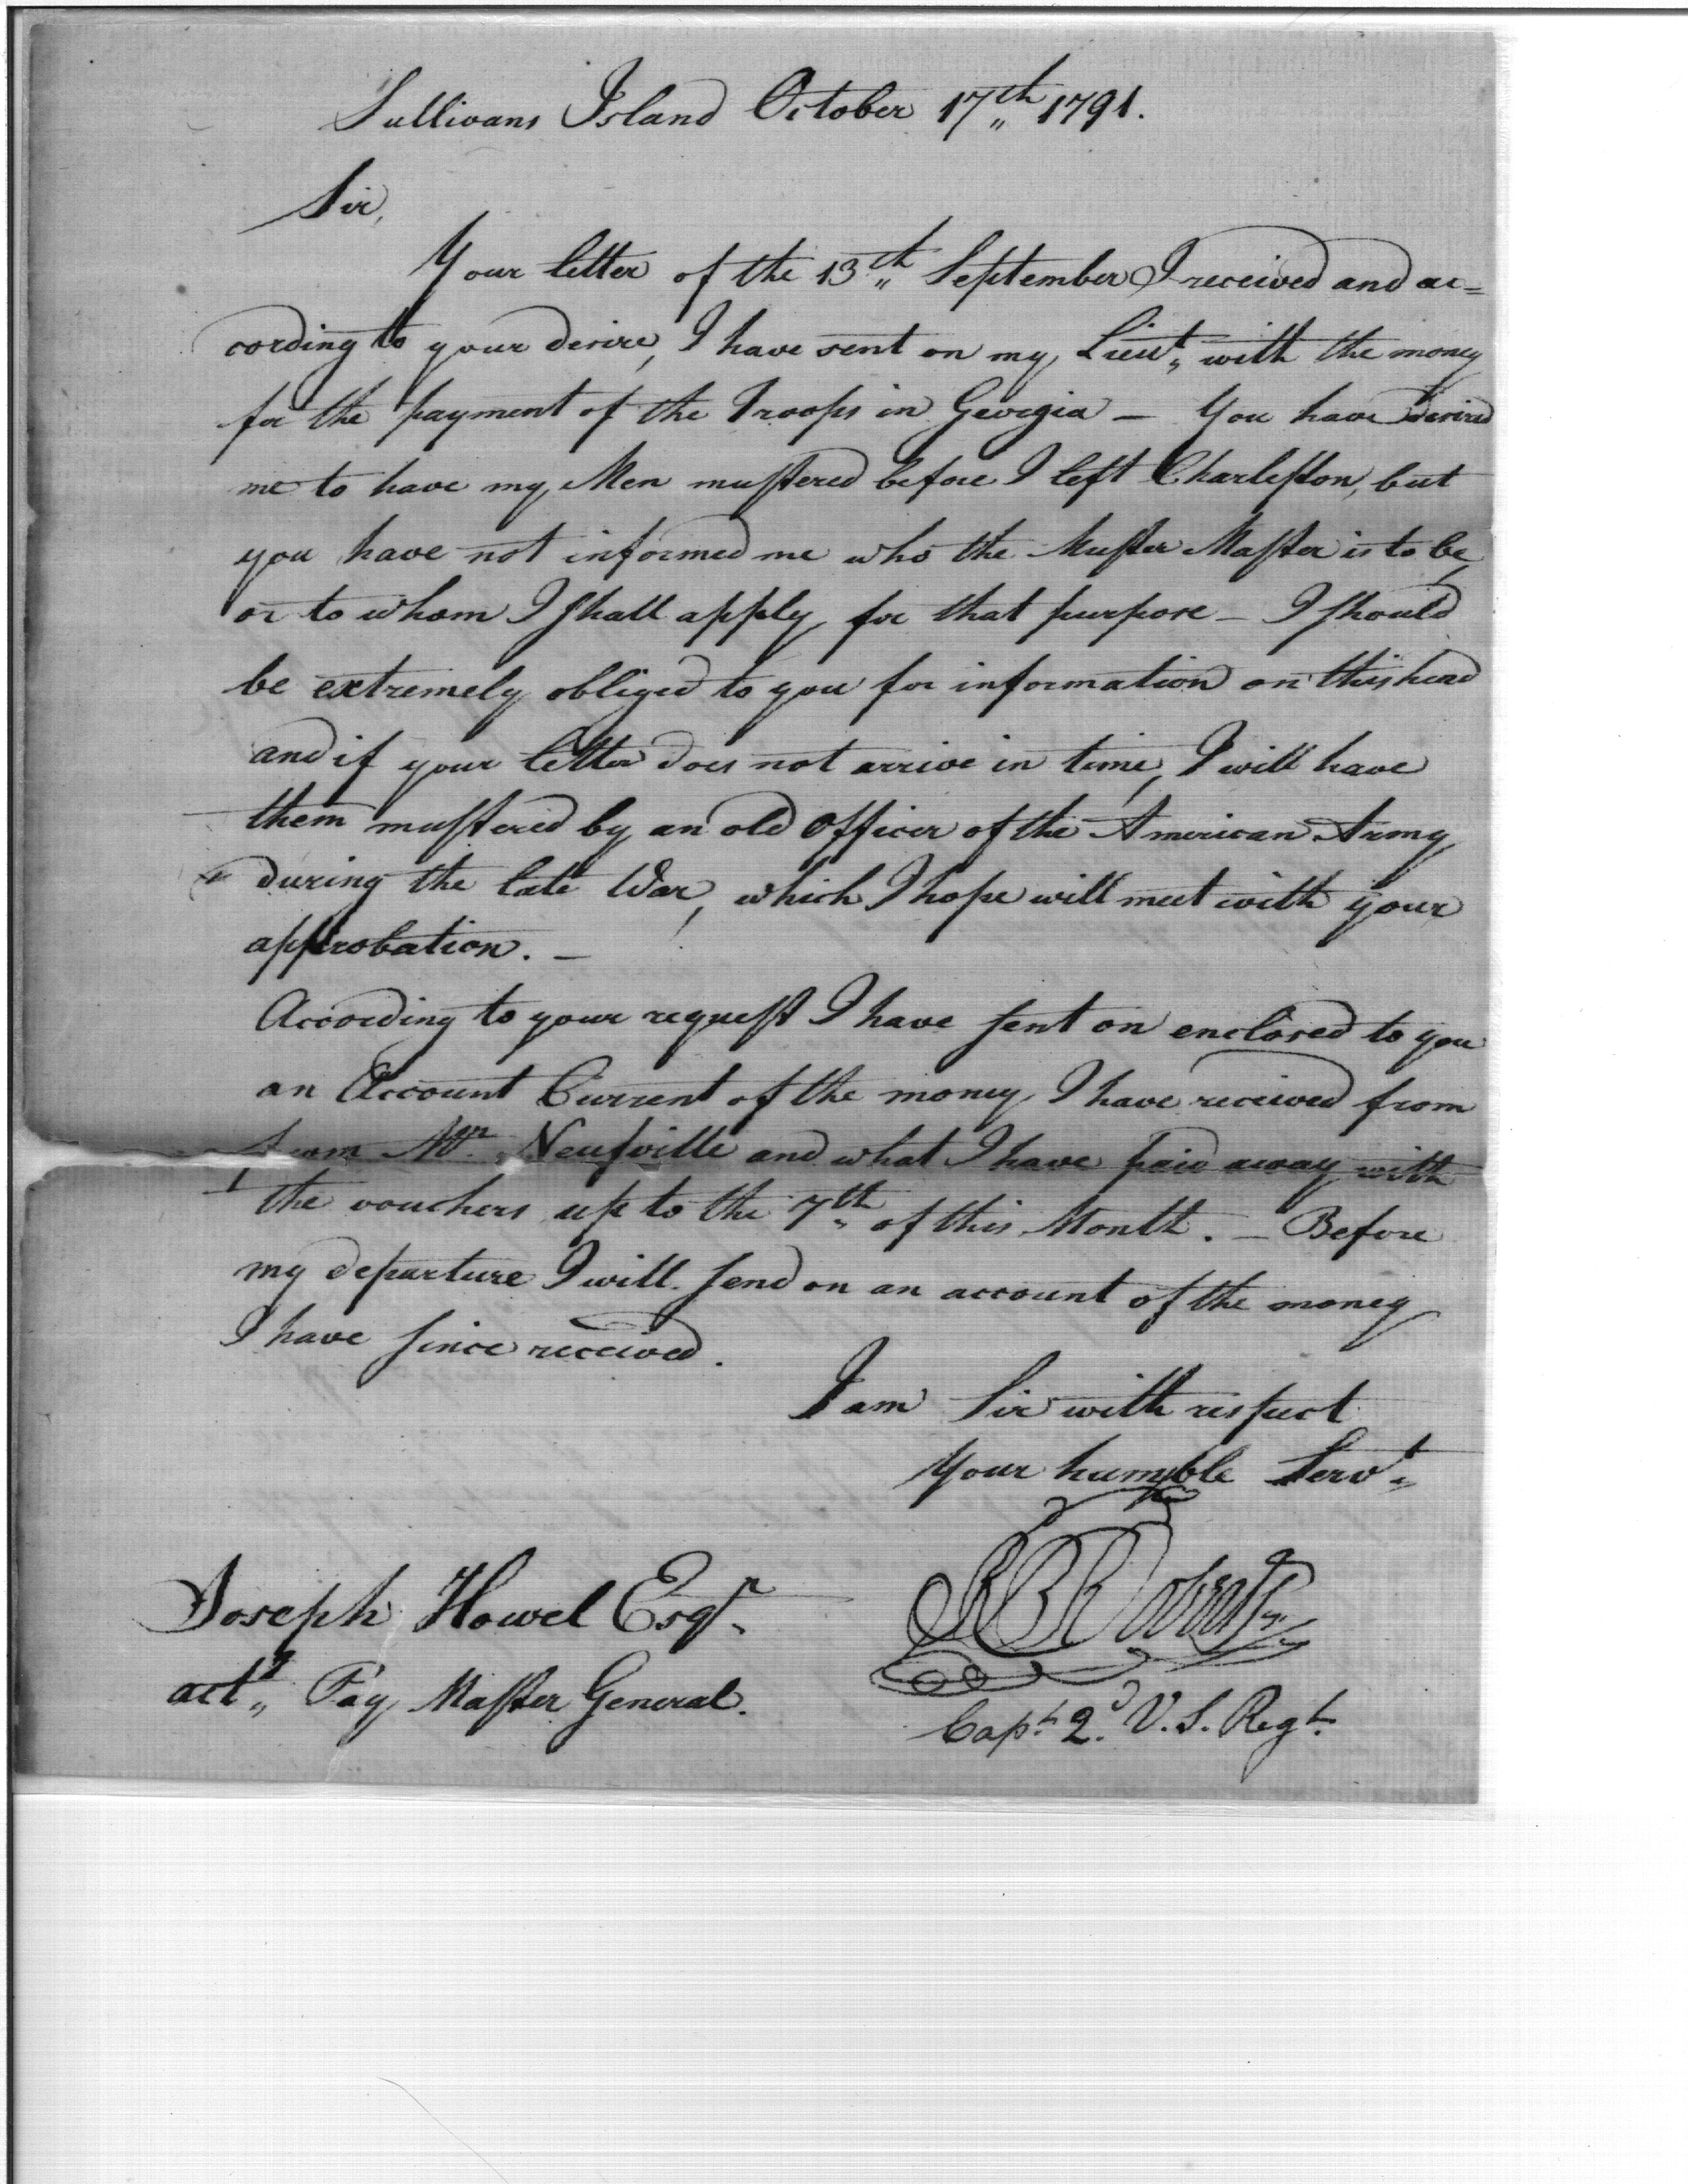 Sullivans Island October 17th 1791.
Sir,
Your letter of the 13th September I received and ac=
cording to your desire, I have sent on my Lieut. with the money
for the payment of the Troops in Georgia – You have desired
me to have my Men mustered before I left Charleston, but
you have not informed me who the Muster Master is to be,
or to whom I shall apply for that purpose – I should
be extremely obliged to you for information on this head
and if your letter does not arrive in time, I will have
them mustered by an old Officer of the American Army
during the late War, which I hope will meet with your
approbation. –
According to your request I have sent on enclosed to you
an Account Current of the money I have received from
from Mr. Neufville and what I have paid away with
the vouchers up to the 7th of this Month. – Before
my departure I will send on an account of the money
I have since received.
I am Sir with respect
Your humble Servt.
RB Roberts
Joseph Howel Esqr.
actg. Pay Master General.
Capt. 2d. U.S. Regt.